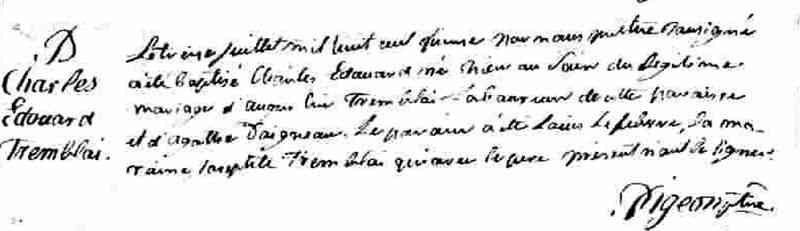 B
Charles
Edouard
Tremblai.
Le treise juillet mil huit cent quinse par nous prêtre soussigné
a été baptisé Charles Edouard né hier au soir du légitime
mariage d'augustin Tremblai laboureur de cette paroisse
et d'agathe Daigneau. Le parain a été Louis Lefebvre, la ma-
raine Tremblai qui avec le pere présent n'ont sc signer.
Pigeon ptre.